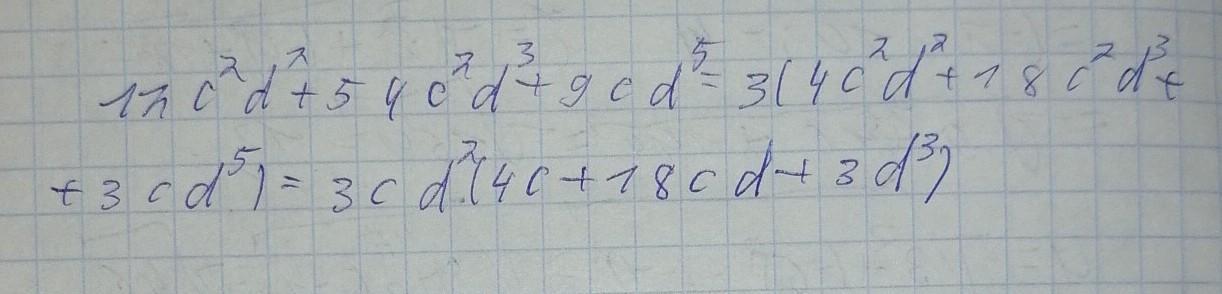 12c²d²+54c²d³+9cd⁵=3(4c²d²+18c²d³+
+3cd⁵)=3cd²(4c+18cd+3d³)